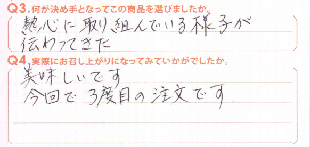 Q3.何が決め手となってこの商品を選びましたか。
熱心に取り組んでいる様子が
伝わってきた
Q4.実際にお召し上がりになってみていかがでしたか。
美味しいです
今回で3度目の注文です